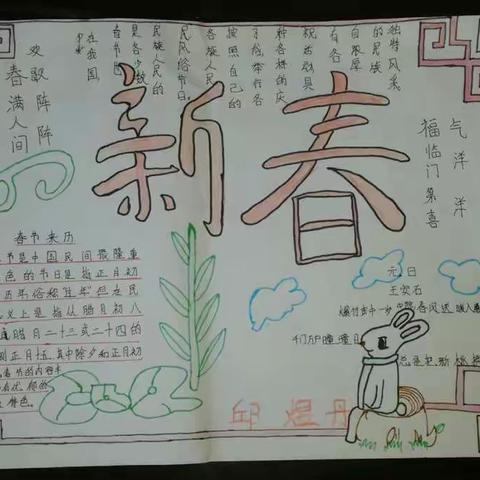 欢歌阵阵
春满人间
在我国
春节是各少数
民族人民的
民风俗节日。
各族人民
按照自己的
举行各
种各样的庆
祝活动具
有各
自浓厚
的民族
独特风采
福临门第喜
气洋洋
新春
春节来历
节是中国民间最隆重
色的节日是指正月初
历年俗称"过年"但在民
义上是指从腊月初八
腊月二十三或二十四的
到正月十五,其中除夕和正月初
元日
王安石
爆竹声中一岁除春风送暖入
们户瞳瞳日
总是把新桃
邱煜丹